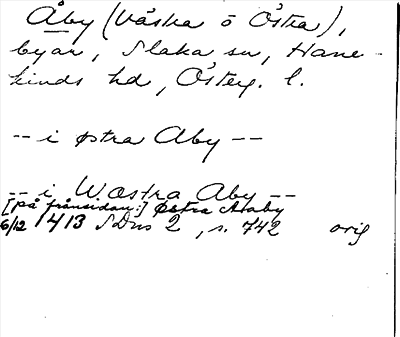 Åby (Västra o Östra),
byar, Slaka sn, Hane-
kinds hd, Österg. l.
-- i østra Aby --
-- i Wæstra Aby --
[på frånsidan:] østra Aaby
6/12 1413 SDns 2, s. 742 orig